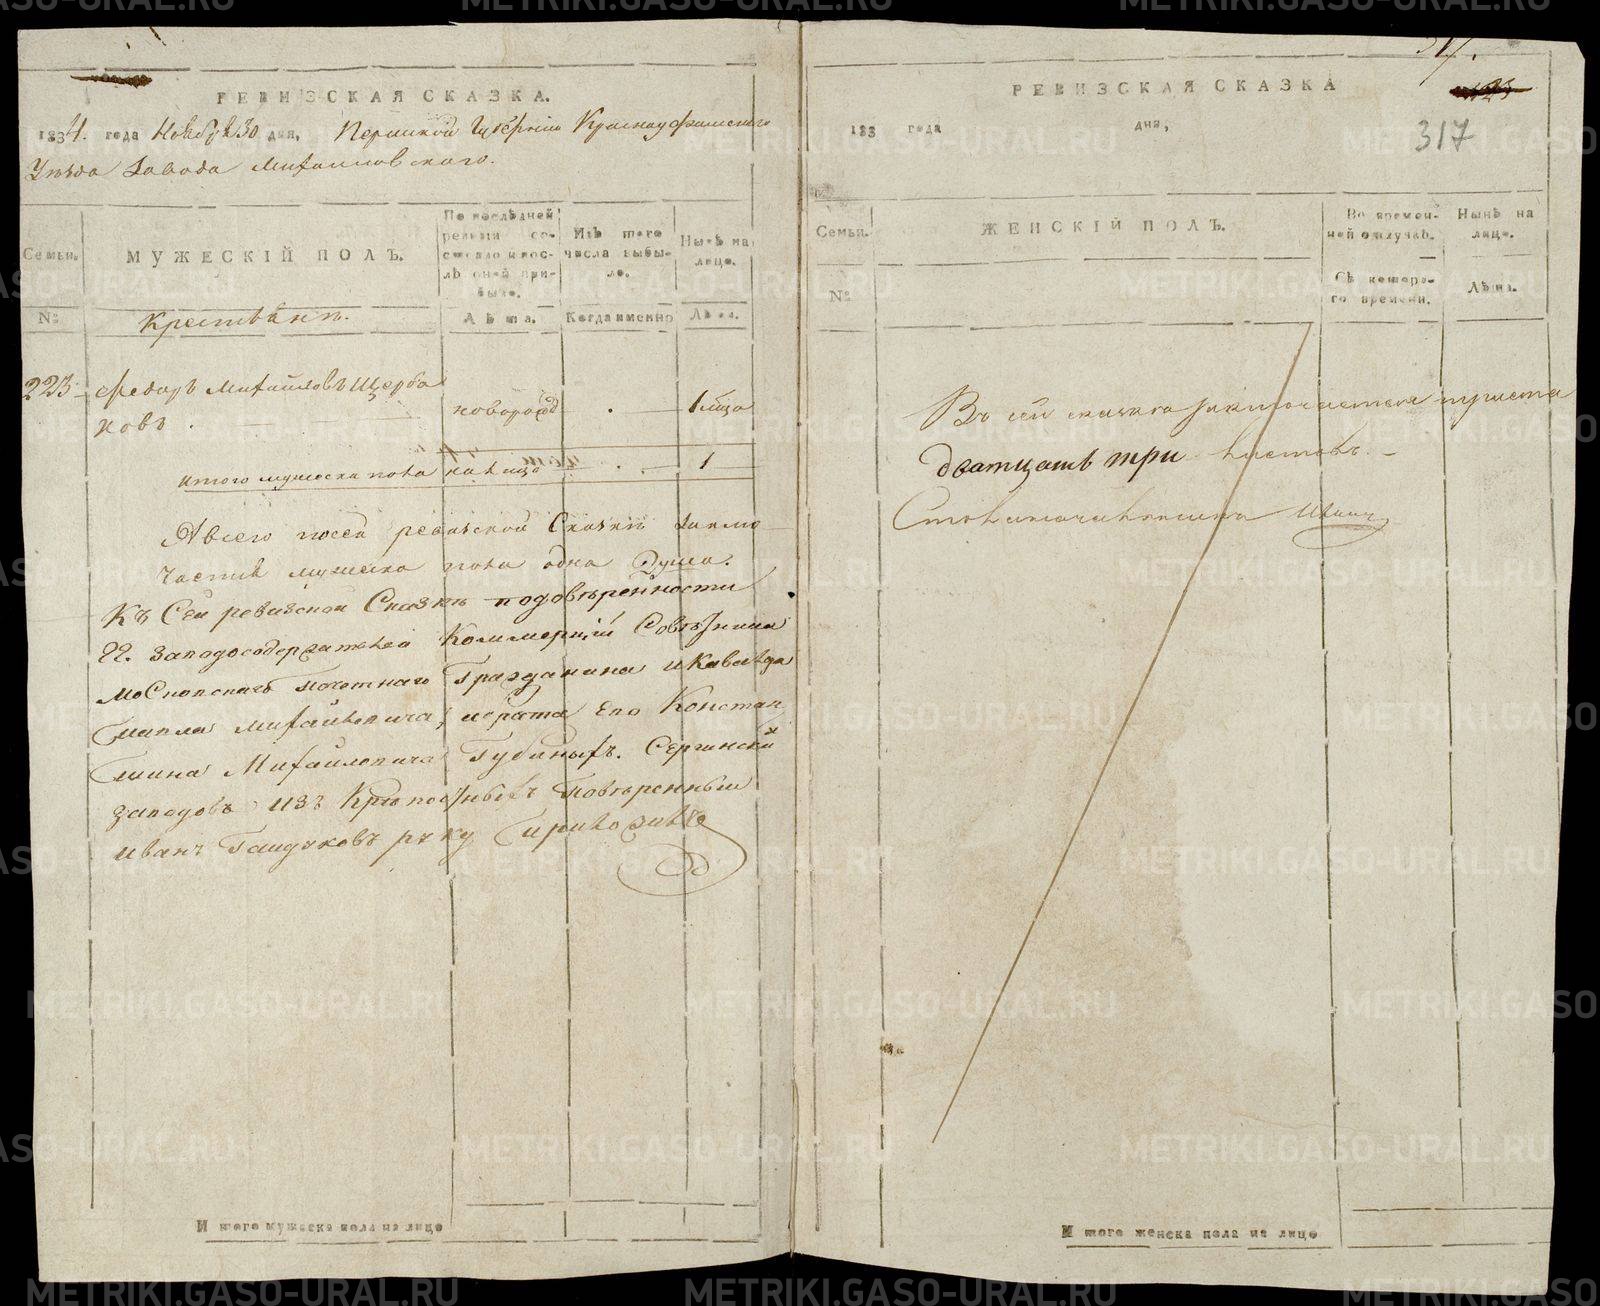 РЕВИЗСКАЯ СКАЗКА.
1834. года Ноября 30 дня, Пермской Губернии Красноуфимскаго
Уезда Завода Михайловскаго.
Семьи.
МУЖЕСКІЙ ПОЛЪ.
По послѣдней ревизіи состояло и послѣ оной прибыло.
Изъ того числа выбыло.
Нынѣ на лице.
№
Крестьянъ.
Лѣта.
Когда именно
Лѣта.
223
Федоръ Михайловъ Щерба
ковъ.
новорожд
1
Итого мужеска пола на лицо
1
А всего по сей ревизской Сказки заклю
чаетъ мужеска пола одна Душа.
Къ Сей ревизской Сказкѣ по довѣренности
ГГ. Заводосодержателей Коммерціи Совѣтника
Московскаго Почетнаго Гражданина и Кавалера
Павла Михайловича, и брата Его Констан
тина Михайловича Губиныхъ. Сергинскихъ
заводовъ изъ Крѣпостныхъ Повѣренный
Иванъ руку Приложилъ
Итого мужеска пола на лице
РЕВИЗСКАЯ СКАЗКА
317
183 года дня,
317
Семьи.
ЖЕНСКІЙ ПОЛЪ.
Во временной отлучкѣ.
Нынѣ на лице.
№
Съ котораго времени.
Лѣта.
Въ сей сказке заключается триста
дватцать три листовъ.
Столоначальникъ
Итого женска пола на лице
METRIKI.GASO-URAL.RU